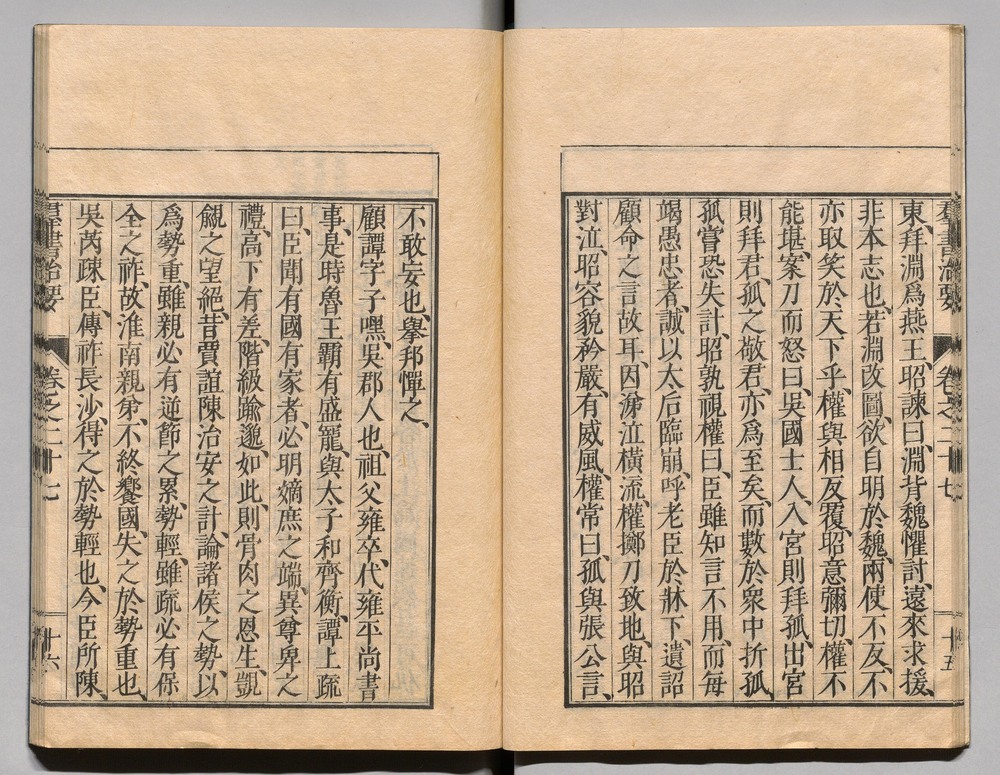 羣書治要 卷之二十七 十五
東、拜淵爲燕王、昭諫曰、淵背魏懼討、遠來求援、
非本志也、若淵改圖、欲自明於魏、兩使不反、不
亦取笑於天下乎、權與相反覆、昭意彌切、權不
能堪、案刀而怒曰、吳國士人、入宮則拜孤、出宮
則拜君、孤之敬君、亦爲至矣、而數於衆中折孤、
孤嘗恐失計、昭孰視權曰、臣雖知言不用、而每
竭愚忠者、誠以太后臨崩、呼老臣於牀下、遺詔
顧命之言故耳、因涕泣橫流、權擲刀致地、與昭
對泣、昭容貌矜嚴、有威風、權常曰、孤與張公言、
不敢妄也、擧邦憚之、
顧譚字子嘿、吳郡人也、祖父雍卒、代雍平尚書
事、是時魯王霸有盛寵、與太子和齊衡、譚上疏
曰、臣聞有國有家者、必明嫡庶之端、異尊卑之
禮、高下有差、階級踰邈、如此、則骨肉之恩生、覬
覦之望絕、昔賈誼陳治安之計、論諸侯之勢、以
爲勢重、雖親必有逆節之累、勢輕、雖疏必有保
全之祚、故淮南親弟、不終饗國、失之於勢重也、
吳芮疎臣、傳祚長沙、得之於勢輕也、今臣所陳、
羣書治要 卷之二十七 十六